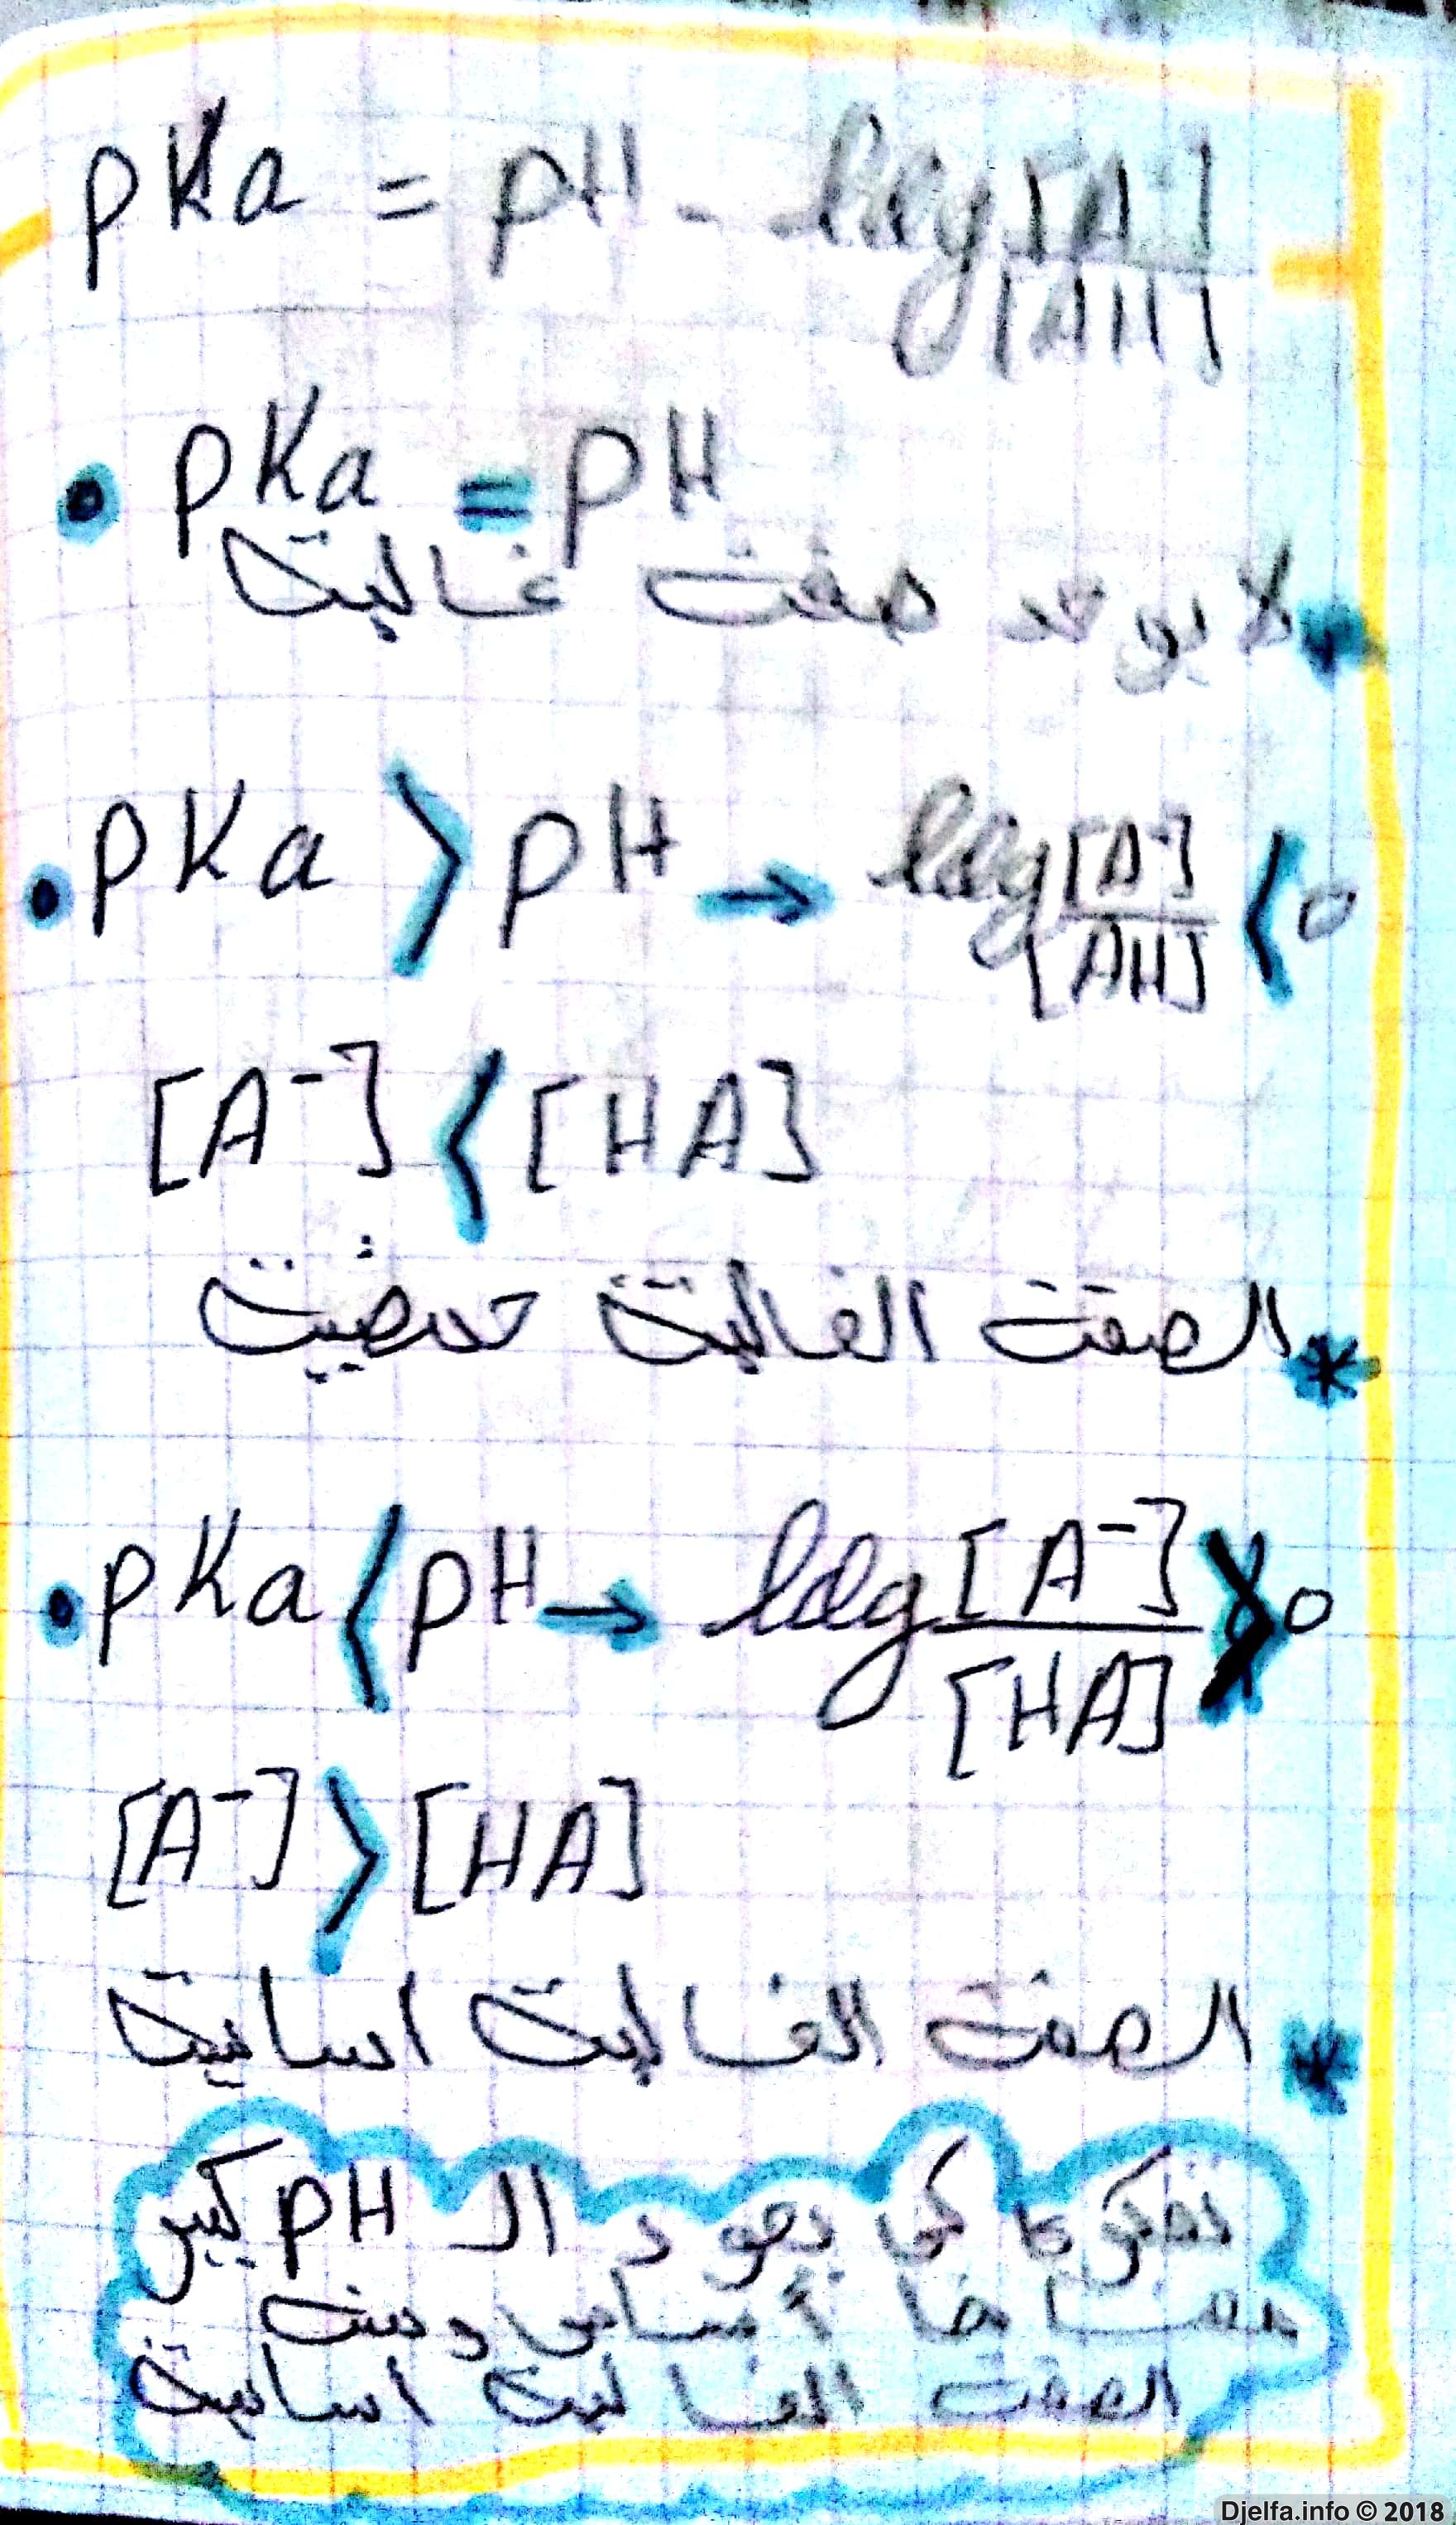 pKa = pH - log [A⁻]/[AH]
• pKa = pH
لا يوجد صفة غالبة
• pKa > pH → log [A⁻]/[AH] < 0
[A⁻] < [HA]
* الصفة الغالبة حمضية
• pKa < pH → log [A⁻]/[HA] > 0
[A⁻] > [HA]
* الصفة الغالبة اساسية
كي يعود الـ pH كبير
أساسي ومنه
الصفة الغالبة اساسية
Djelfa.info © 2018